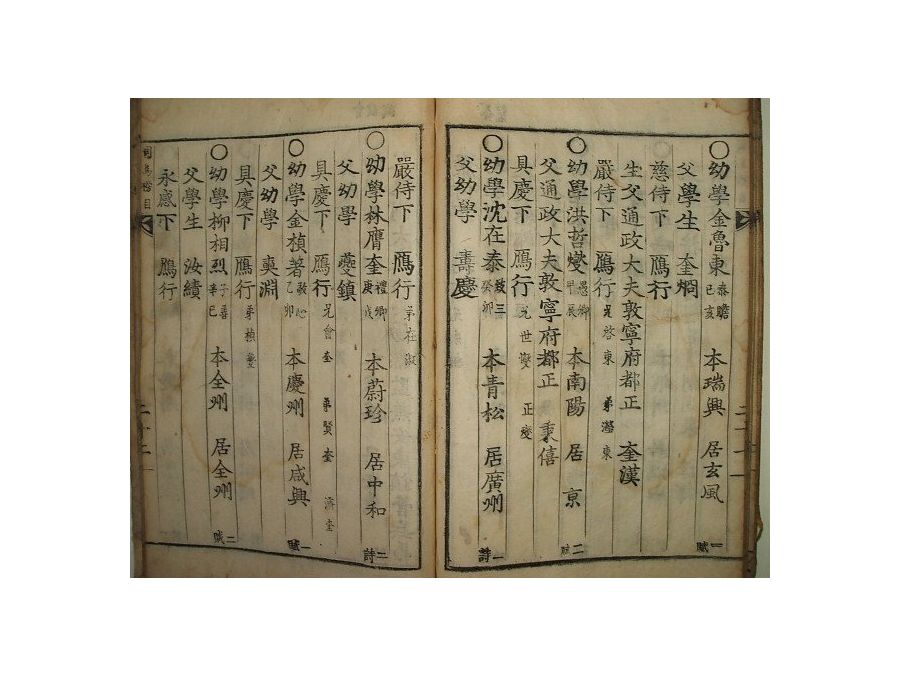 ○幼學金魯東 泰瞻 己亥 本瑞興 居玄風 一賦
父學生 奎烱
慈侍下 鴈行
生父通政大夫敦寧府都正 奎漢
嚴侍下 鴈行 兄啓東 弟瀅東
○幼學洪哲燮 愚卿 甲辰 本南陽 居京 二賦
父通政大夫敦寧府都正 秉僖
具慶下 鴈行 兄世燮 正燮
○幼學沈在泰 敬三 癸卯 本青松 居廣州 一詩
父幼學 壽慶
嚴侍下 鴈行 弟在淑
○幼學林膺奎 禮卿 庚戌 本蔚珍 居中和 二詩
父幼學 夔鎮
具慶下 鴈行 兄會奎 弟賢奎 濟奎
○幼學金楨著 敬心 乙卯 本慶州 居咸興 一賦
父幼學 奭淵
具慶下 鴈行
○幼學柳相烈 子善 辛巳 本全州 居全州 二賦
父學生 汝績
永感下 鴈行
司馬榜目